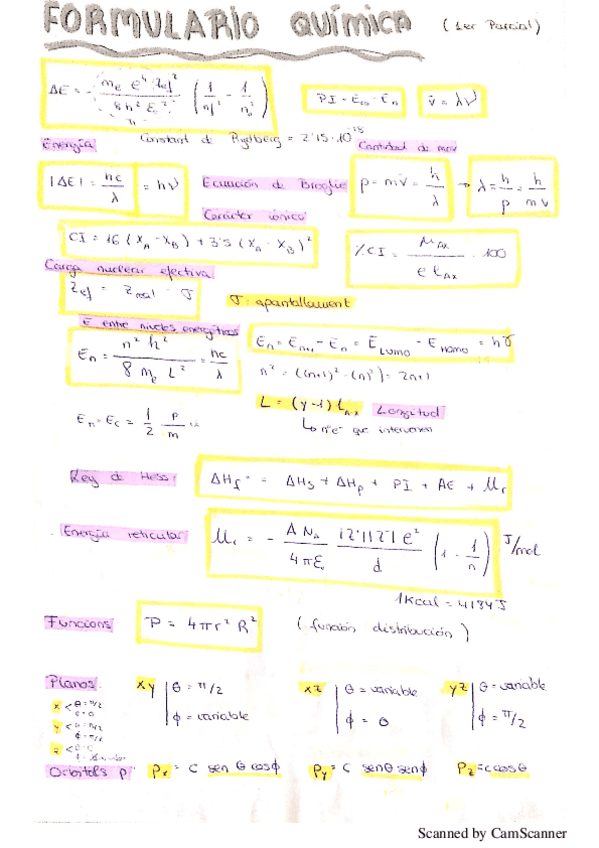 FORMULARIO QUÍMICA (1er Parcial)
ΔE = - me e⁴ Zef² / 8 h² ε₀² (1/nf² - 1/n₀²)
PI = E∞ - En
v = λν
Constant de Rydberg = 2'15·10
Energía
Cantidad de mov
|ΔE| = hc/λ = hν
Ecuación de Broglie
p = mv = h/λ → λ = h/p = h/mv
Carácter iónico
CI = 16 (XA - XB) + 3'5 (XA - XB)²
% CI = μAX / e LAX · 100
Carga nuclear efectiva
Zef = Zreal - σ
σ: apantallament
E entre niveles energéticos
En = n² h² / 8 me L² = hc/λ
En = En+1 - En = ELUMO - EHOMO = hν
n² = ((n+1)² - (n)²) = 2n+1
L = (y-1) Longitud
↳ nºe⁻ que intervienen
En = Ec = 1/2 p/m
Ley de Hess:
ΔHf° = ΔHs + ΔHp + PI + AE + Ur
Energía reticular
Ur = - A NA |z⁺||z⁻| e² / 4πε₀ d (1 - 1/n) J/mol
1Kcal = 4184J
Funcions
P = 4πr² R² (función distribución)
Planos
xy | θ = π/2
φ = variable
xz | θ = variable
φ = 0
yz | θ = variable
φ = π/2
x < θ = π/2
φ = 0
y < θ = π/2
φ = π/2
z < θ = 0
Orbitals p
Px = C sen θ cosφ
Py = C senθ senφ
Pz = c cosθ
Scanned by CamScanner